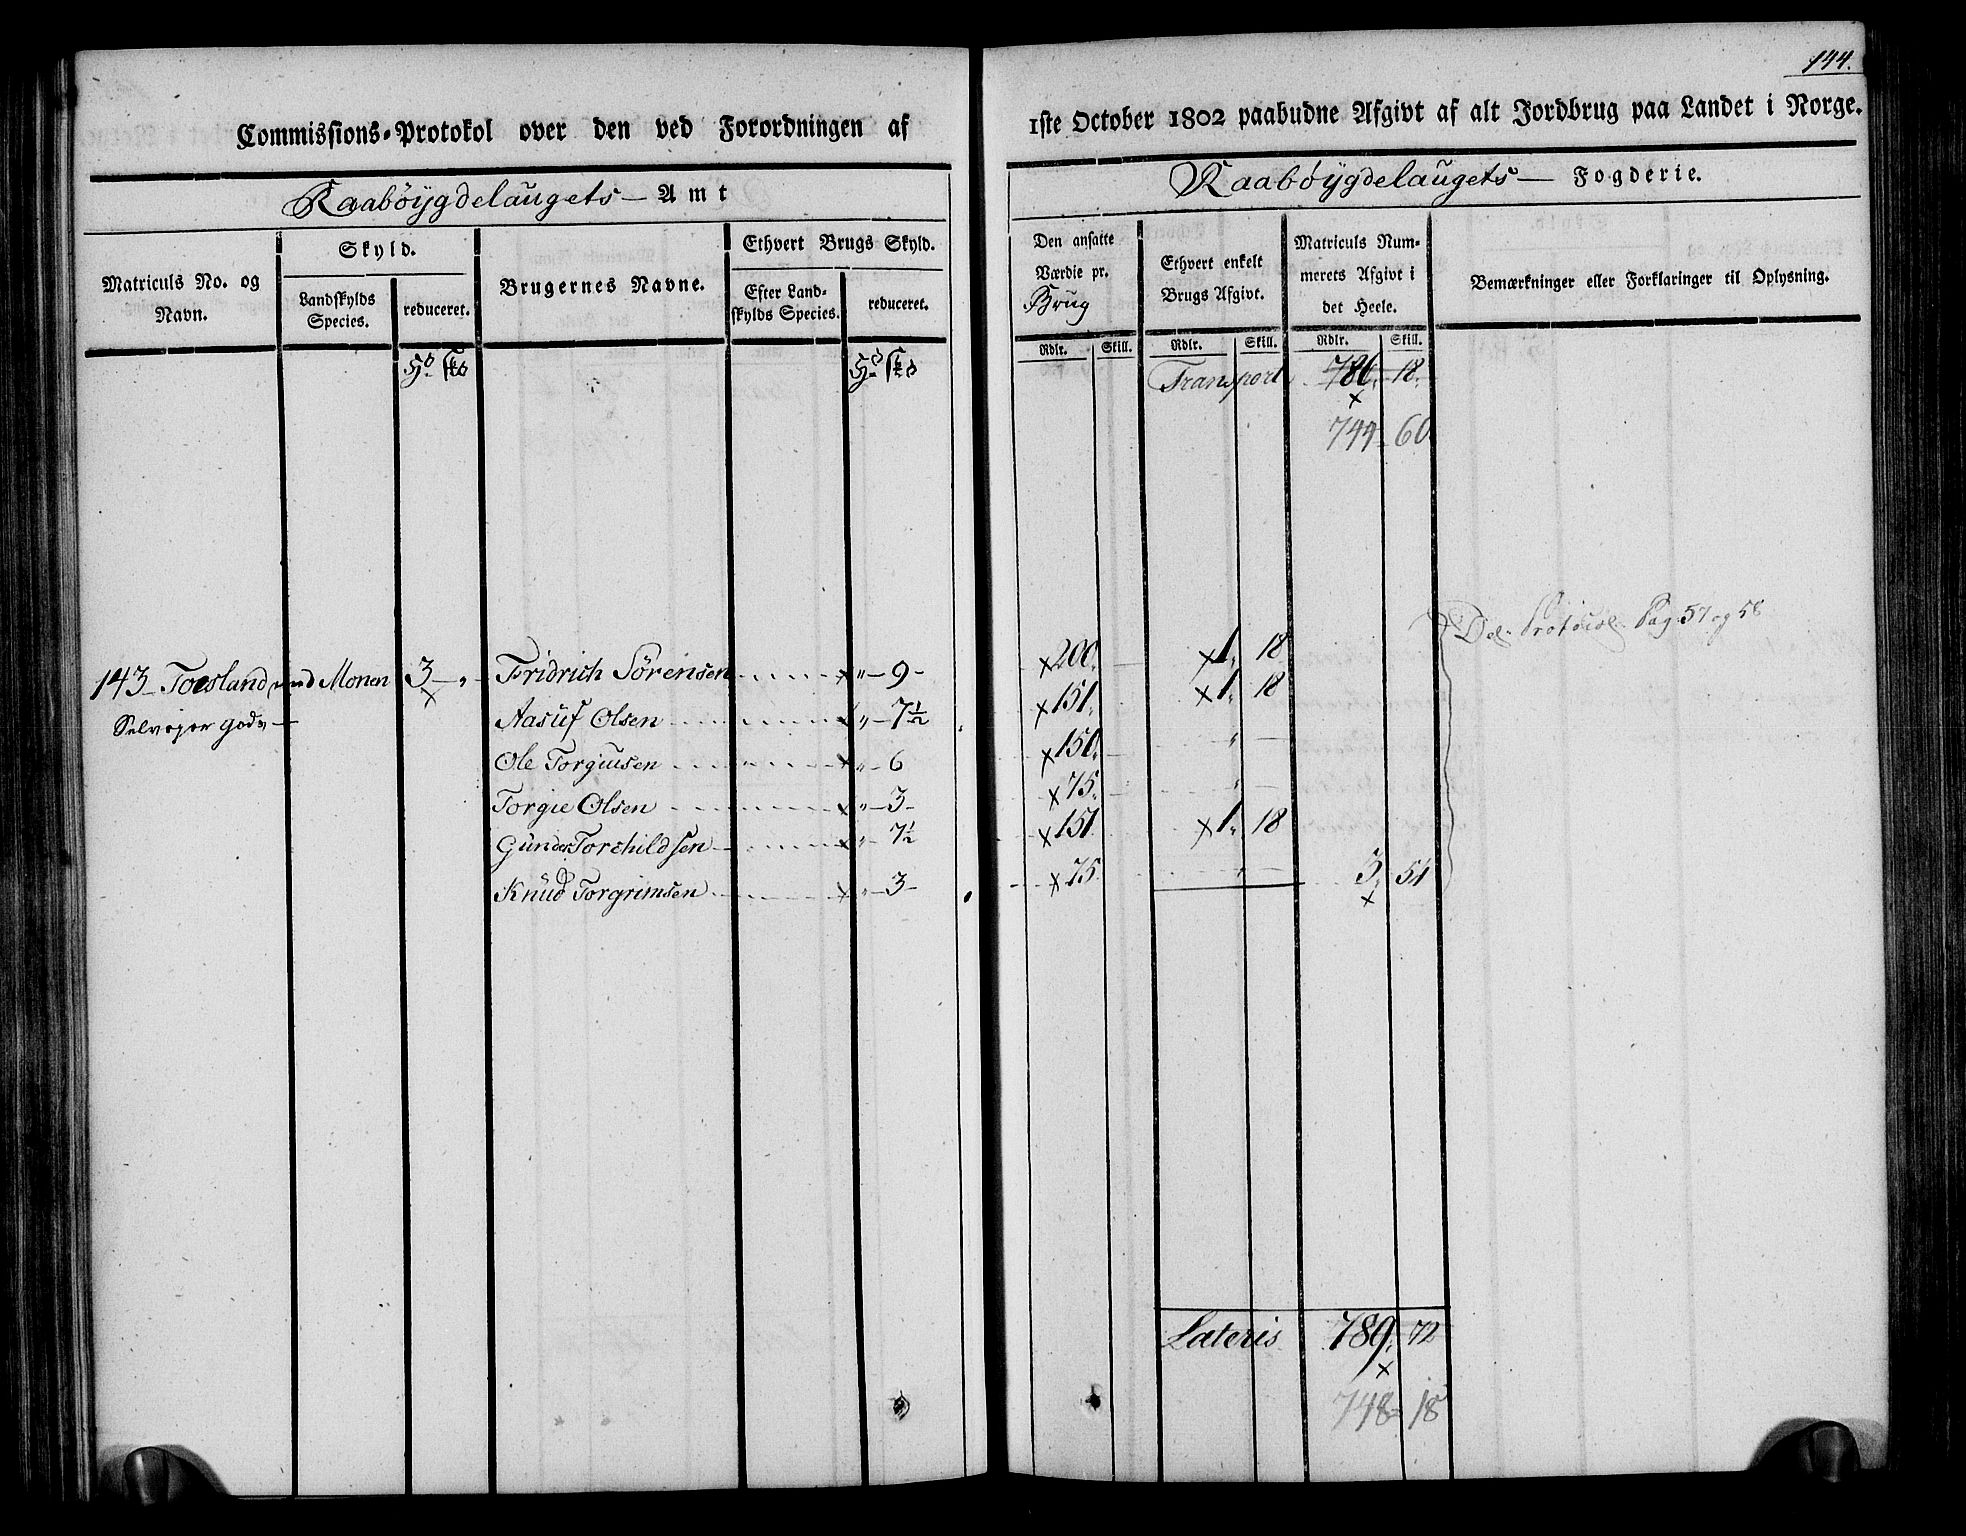 144.
Commissions-Protokol over den ved Forordningen af 1ste October 1802 paabudne Afgivt af alt Jordbrug paa Landet i Norge.
Raabøygdelaugets Amt
Raabøygdelaugets Fogderie.
Matriculs No. og Navn.
Skyld.
Landskylds Species.
reduceret.
Brugernes Navne.
Ethvert Brugs Skyld.
Efter Landskylds Species.
reduceret.
Den ansatte Værdie pr. Brug
Ethvert enkelt Brugs Afgivt.
Matriculs Nummerets Afgivt i det Heele.
Bemærkninger eller Forklaringer til Oplysning.
Rdlr. Skill. Rdlr. Skill. Rdlr. Skill.
Transport 786. 18.
744 60
Del. Protocol Pag. 57 og 58
143 Toesland med Monen 3 " Fridrich Sörensen " 9 200. 1. 18
Selveyer Gods Aasuf Olsen " 7½ 151. 1. 18
Ole Torgiusen " 6 150. "
Torgie Olsen " 3 75. "
Gunder Torchildsen " 7½ 151 1. 18
Knud Torgrimsen " 3 75. " 3. 54
Lateris 789. 72
748 18